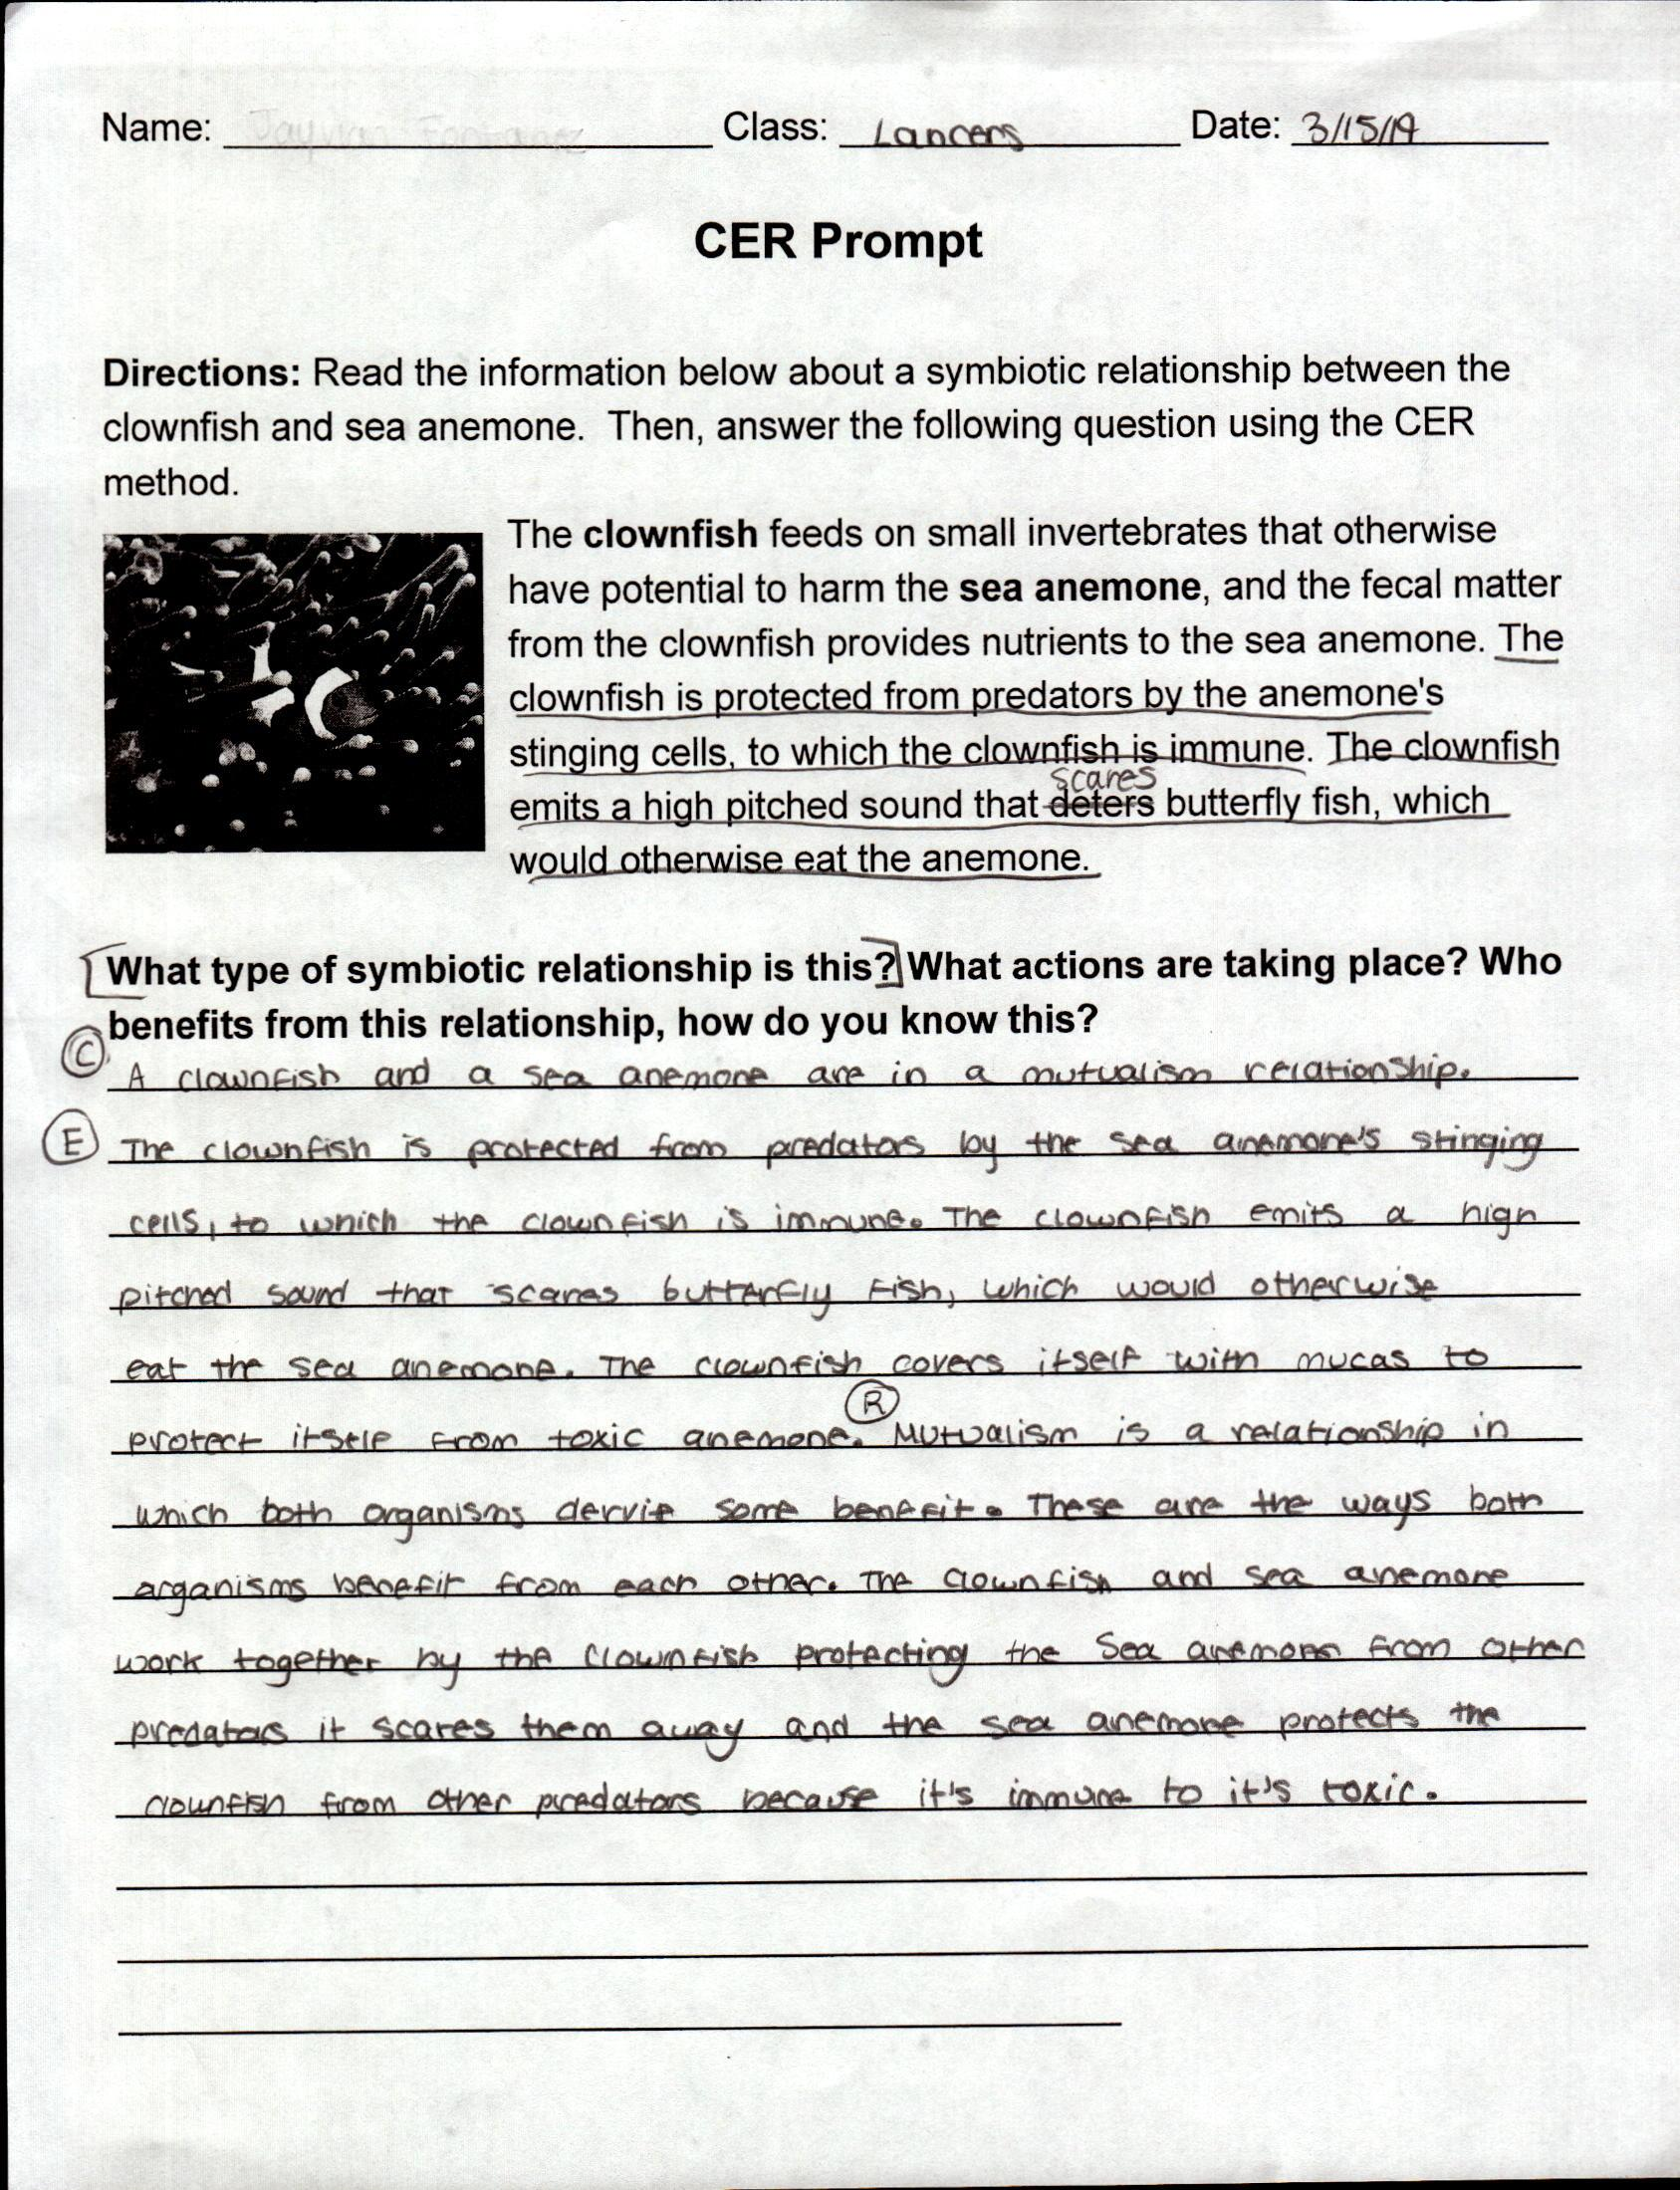 Name: Class: Lancers Date: 3/15/19
CER Prompt
Directions: Read the information below about a symbiotic relationship between the
clownfish and sea anemone. Then, answer the following question using the CER
method.
The clownfish feeds on small invertebrates that otherwise
have potential to harm the sea anemone, and the fecal matter
from the clownfish provides nutrients to the sea anemone. The
clownfish is protected from predators by the anemone's
stinging cells, to which the clownfish is immune. The clownfish
scares
emits a high pitched sound that deters butterfly fish, which
would otherwise eat the anemone.
What type of symbiotic relationship is this? What actions are taking place? Who
benefits from this relationship, how do you know this?
C A clownfish and a sea anemone are in a mutualism relationship.
E The clownfish is protected from predators by the sea anemone's stinging
cells, to which the clownfish is immune. The clownfish emits a high
pitched sound that scares butterfly fish, which would otherwise
eat the sea anemone. The clownfish covers itself with mucas to
R
protect itself from toxic anemone. Mutualism is a relationship in
which both organisms dervie some benefit. These are the ways both
organisms benefit from each other. The clownfish and sea anemone
work together by the clownfish protecting the sea anemone from other
predators it scares them away and the sea anemone protects the
clownfish from other predators because it's immune to it's toxic.